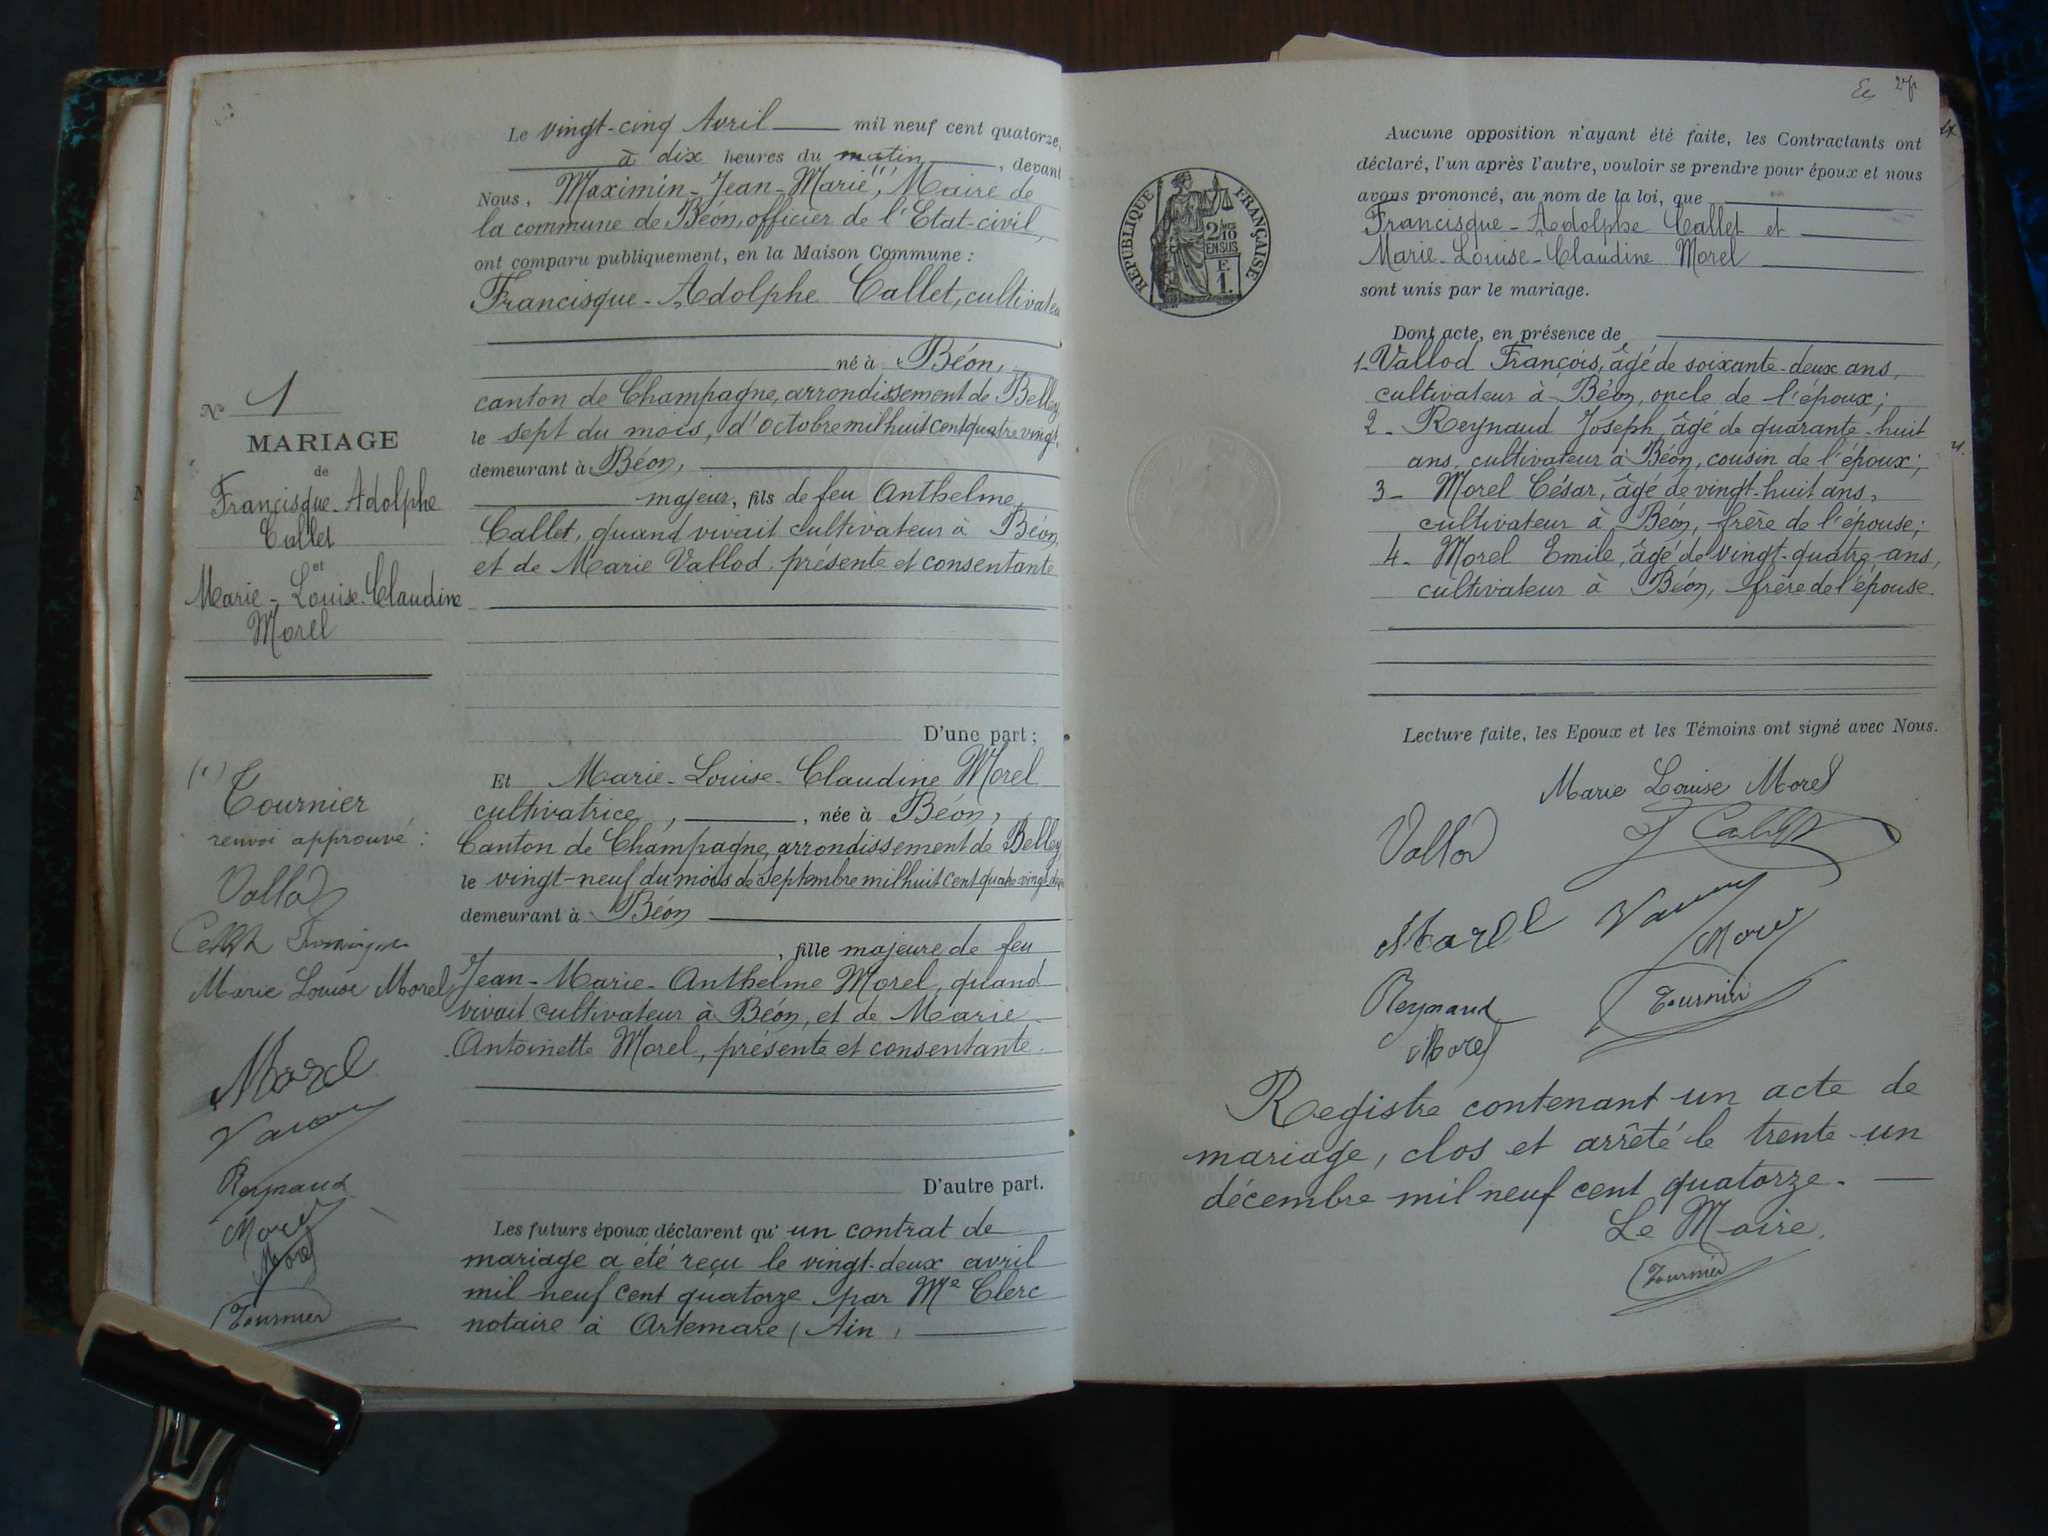 Le vingt-cinq Avril mil neuf cent quatorze,
à dix heures du matin, devant
Nous, Maximin-Jean-Marie (1), Maire de
la commune de Béon, officier de l'Etat-civil,
ont comparu publiquement, en la Maison Commune :
Francisque-Adolphe Callet, cultivateu
né à Béon,
canton de Champagne, arrondissement de Belley
le sept du mois, d'octobre mil huit cent quatre vingt,
demeurant à Béon,
majeur, fils de feu Anthelme
Callet, quand vivait cultivateur à Béon
et de Marie Vallod, présente et consentante
D'une part ;
Et Marie-Louise-Claudine Morel
cultivatrice, née à Béon,
Canton de Champagne, arrondissement de Belley
le vingt-neuf du mois de Septembre mil huit cent quatre vingt
demeurant à Béon
fille majeure de feu
Jean-Marie-Anthelme Morel, quand
vivait cultivateur à Béon, et de Marie
Antoinette Morel, présente et consentante.
D'autre part.
Les futurs époux déclarent qu'un contrat de
mariage a été reçu le vingt-deux avril
mil neuf cent quatorze par Me Clerc
notaire à Artemare (Ain)
N° 1
MARIAGE
de
Francisque-Adolphe
Callet
et
Marie-Louise-Claudine
Morel
(1)
Tournier
renvoi approuvé :
Vallod
Marie Louise Morel
Morel
Reynaud
Morel
Tournier
RÉPUBLIQUE FRANÇAISE
2/10 EN SUS
E.
1.
Aucune opposition n'ayant été faite, les Contractants ont
déclaré, l'un après l'autre, vouloir se prendre pour époux et nous
avons prononcé, au nom de la loi, que
Francisque-Adolphe Callet et
Marie-Louise-Claudine Morel
sont unis par le mariage.
Dont acte, en présence de
1- Vallod François, âgé de soixante-deux ans,
cultivateur à Béon, oncle de l'époux ;
2- Reynaud Joseph, âgé de quarante-huit
ans, cultivateur à Béon, cousin de l'époux ;
3- Morel César, âgé de vingt-huit ans,
cultivateur à Béon, frère de l'épouse ;
4- Morel Emile, âgé de vingt-quatre ans,
cultivateur à Béon, frère de l'épouse.
Lecture faite, les Epoux et les Témoins ont signé avec Nous.
Marie Louise Morel
Vallod
Morel
Reynaud
Tournier
Morel
Registre contenant un acte de
mariage, clos et arrêté le trente-un
décembre mil neuf cent quatorze.
Le Maire,
Tournier